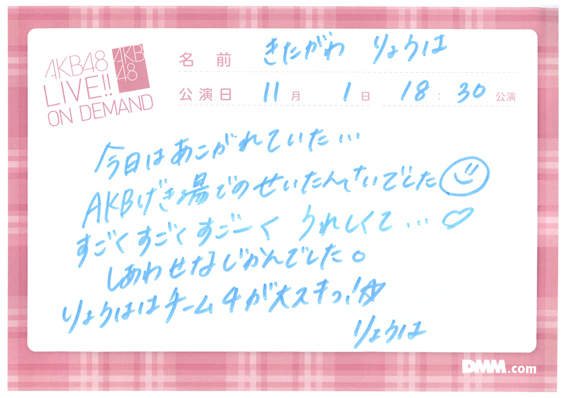 AKB48
LIVE!!
ON DEMAND
AKB
48
名前 きたがわ りょうは
公演日 11月 1日 18:30 公演
今日はあこがれていた…
AKBげき場でのせいたんさいでした
すごくすごくすごーく うれしくて…♡
しあわせなじかんでした。
りょうははチーム4が大スキっ!☆
りょうは
DMM.com